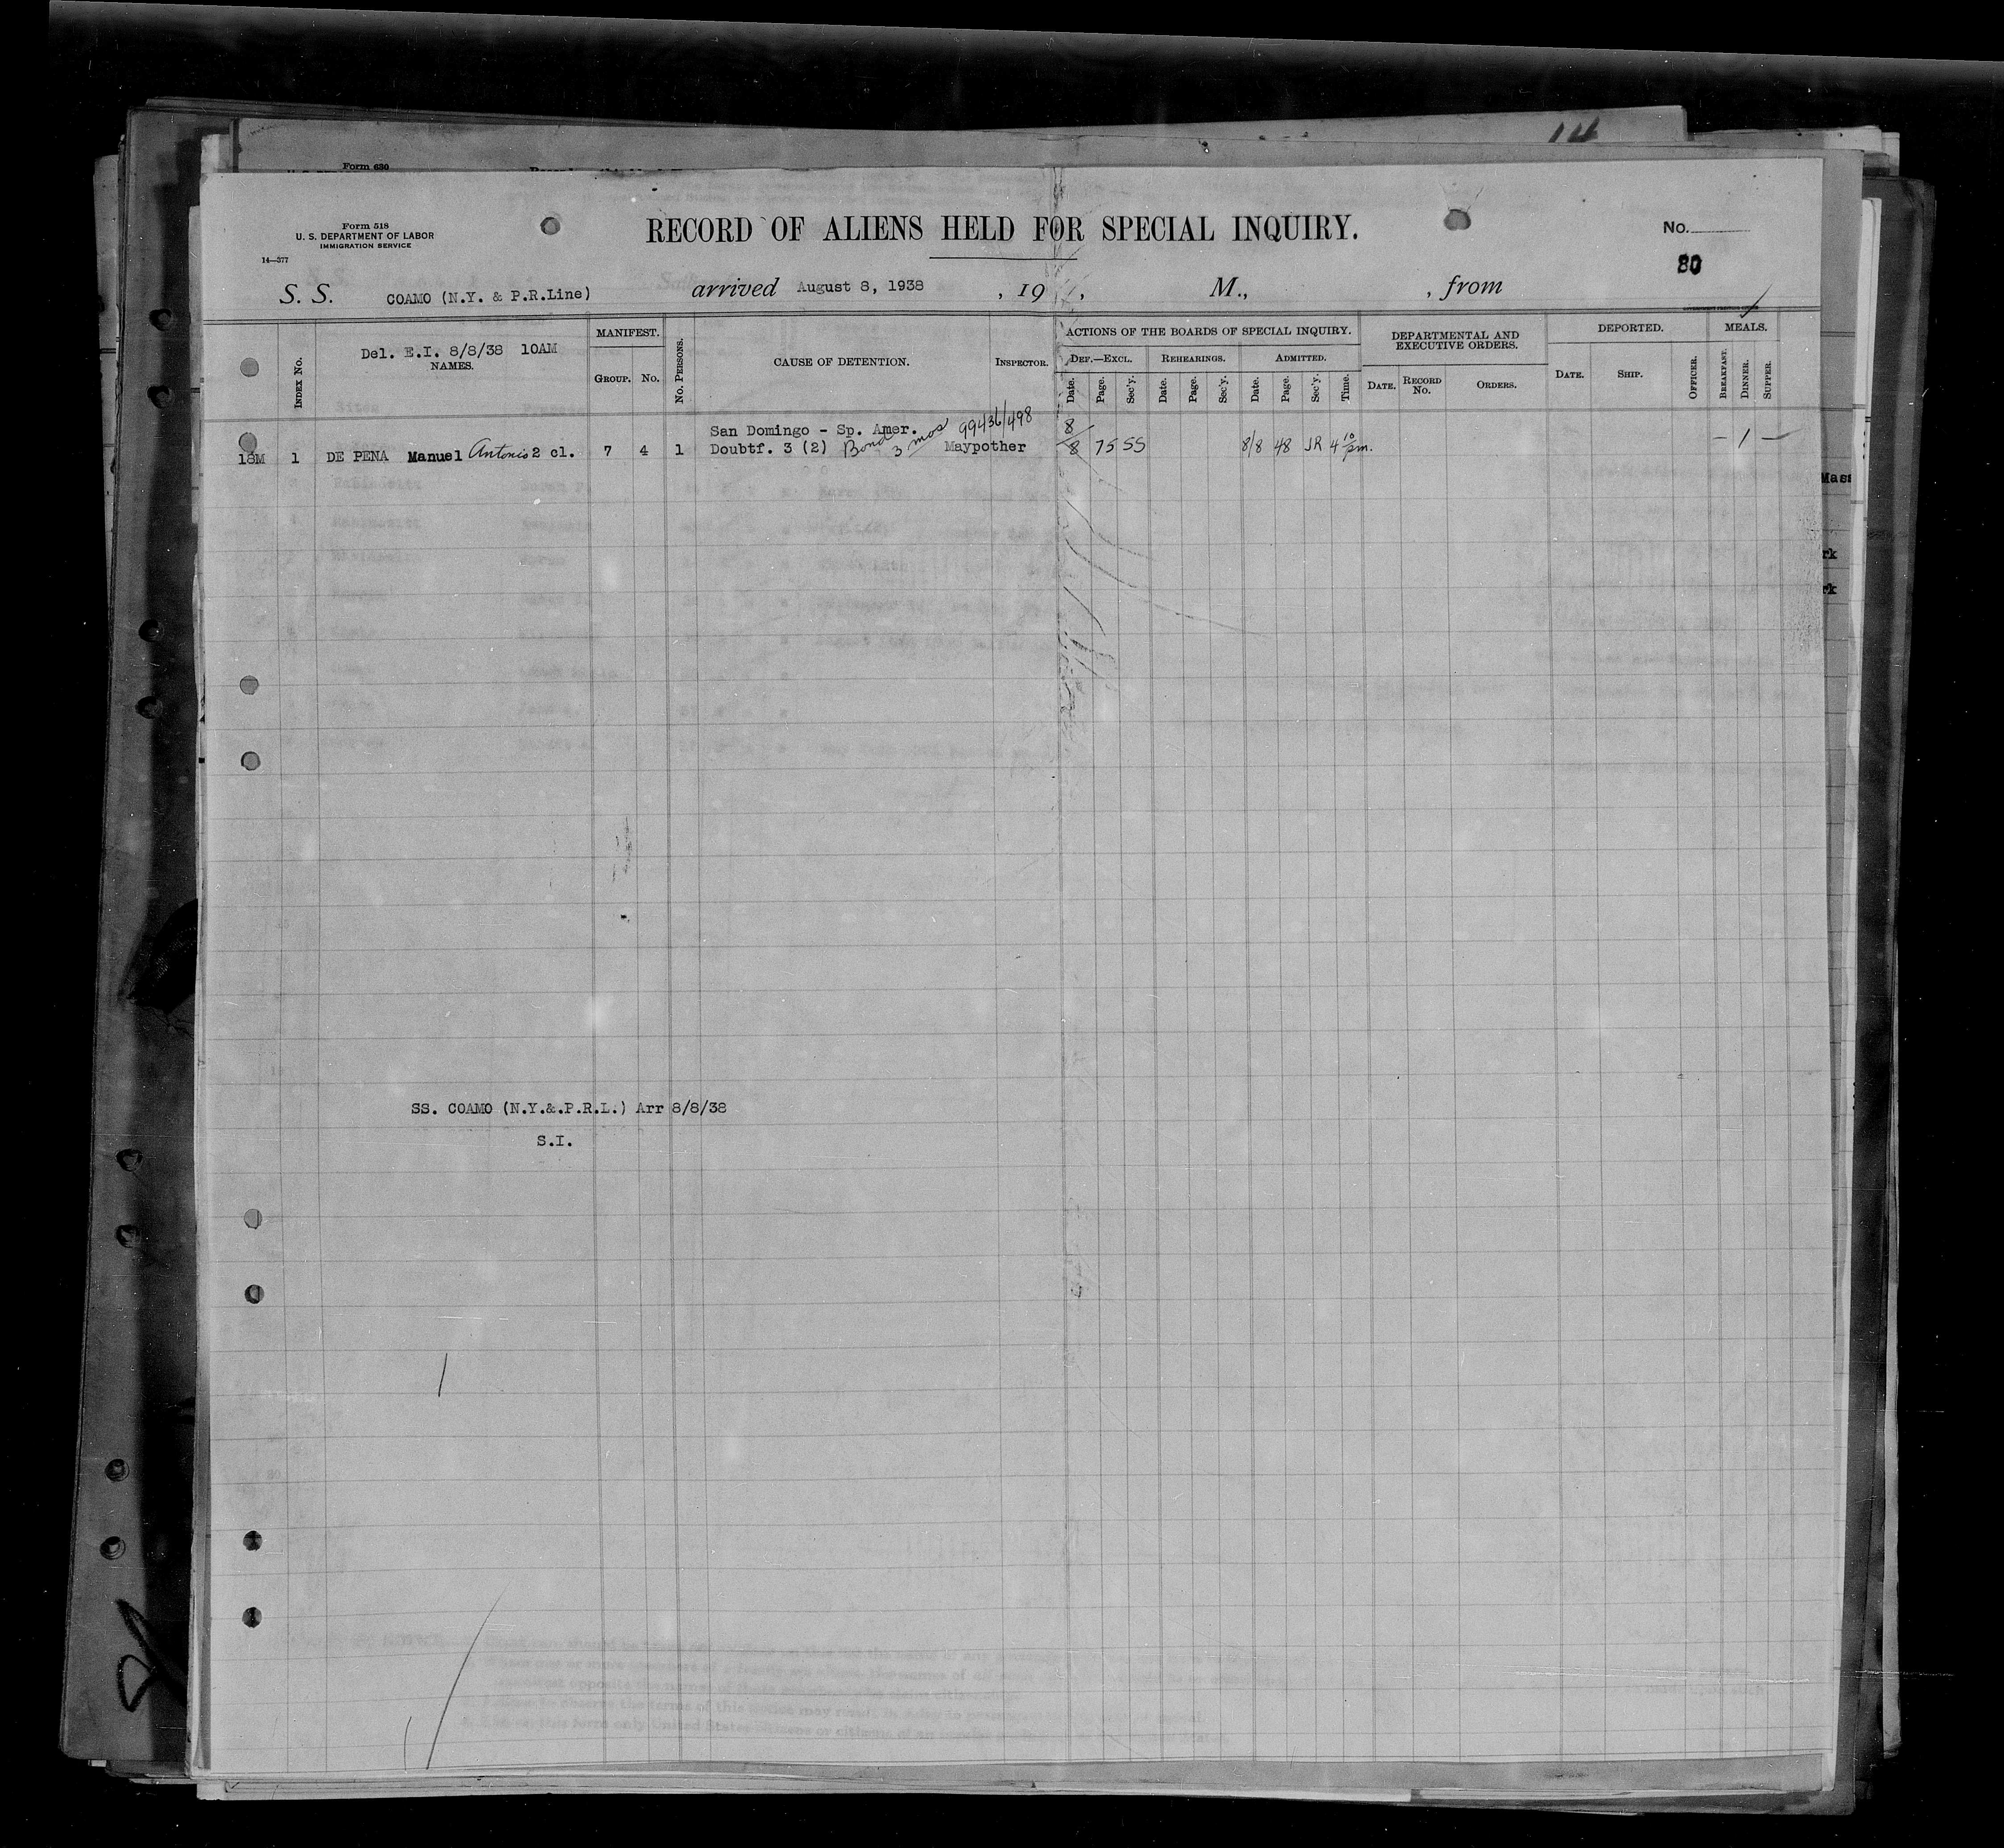 14
Form 630
Form 518
U. S. DEPARTMENT OF LABOR
IMMIGRATION SERVICE
14—377
RECORD OF ALIENS HELD FOR SPECIAL INQUIRY.
No.
80
S. S. COAMO (N.Y. & P.R.Line) arrived August 8, 1938 , 19 , M., , from
INDEX No.
Del. E.I. 8/8/38 10AM
NAMES.
MANIFEST.
GROUP. No.
No. PERSONS.
CAUSE OF DETENTION.
INSPECTOR.
ACTIONS OF THE BOARDS OF SPECIAL INQUIRY.
DEF.—EXCL. REHEARINGS. ADMITTED.
Date. Page. Sec'y. Date. Page. Sec'y. Date. Page. Sec'y. Time.
DEPARTMENTAL AND
EXECUTIVE ORDERS.
DATE. RECORD No. ORDERS.
DEPORTED.
DATE. SHIP. OFFICER.
MEALS.
BREAKFAST. DINNER. SUPPER.
San Domingo - Sp. Amer. 99436/498
18M 1 DE PENA Manuel Antonio 2 cl. 7 4 1 Doubtf. 3 (2) Bond 3 mos Maypother 8/8 75 SS 8/8 48 JR 4 10 pm. — 1 —
Mass
rk
rk
SS. COAMO (N.Y.&.P.R.L.) Arr 8/8/38
S.I.